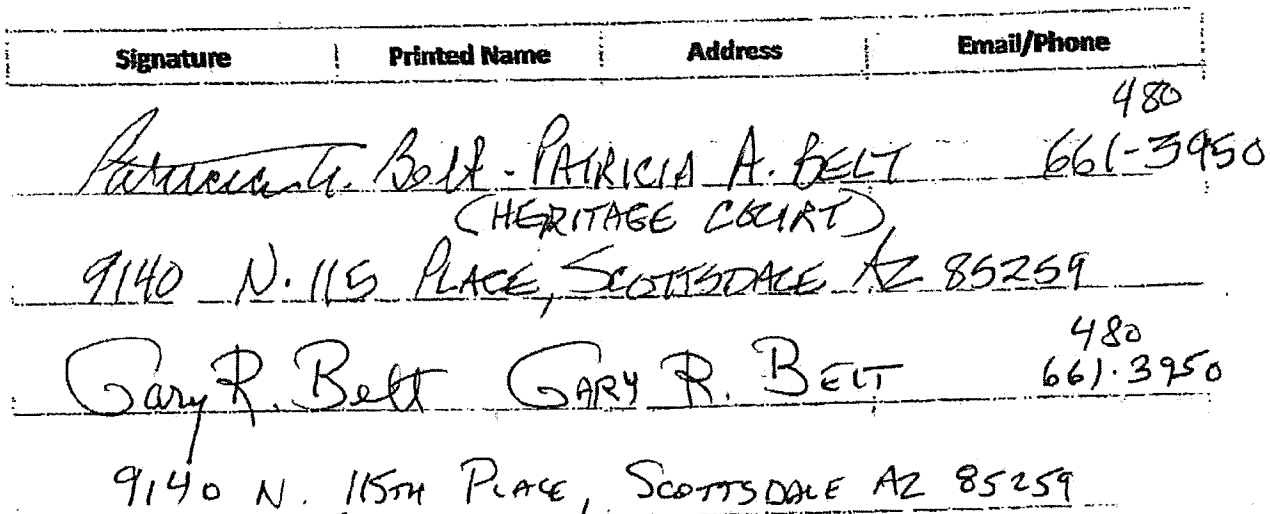 Signature Printed Name Address Email/Phone
480
Patricia A. Belt - PATRICIA A. BELT 661-3950
(HERITAGE COURT)
9140 N. 115 PLACE, SCOTTSDALE AZ 85259
480
Gary R. Belt GARY R. BELT 661.3950
9140 N. 115TH PLACE, SCOTTSDALE AZ 85259